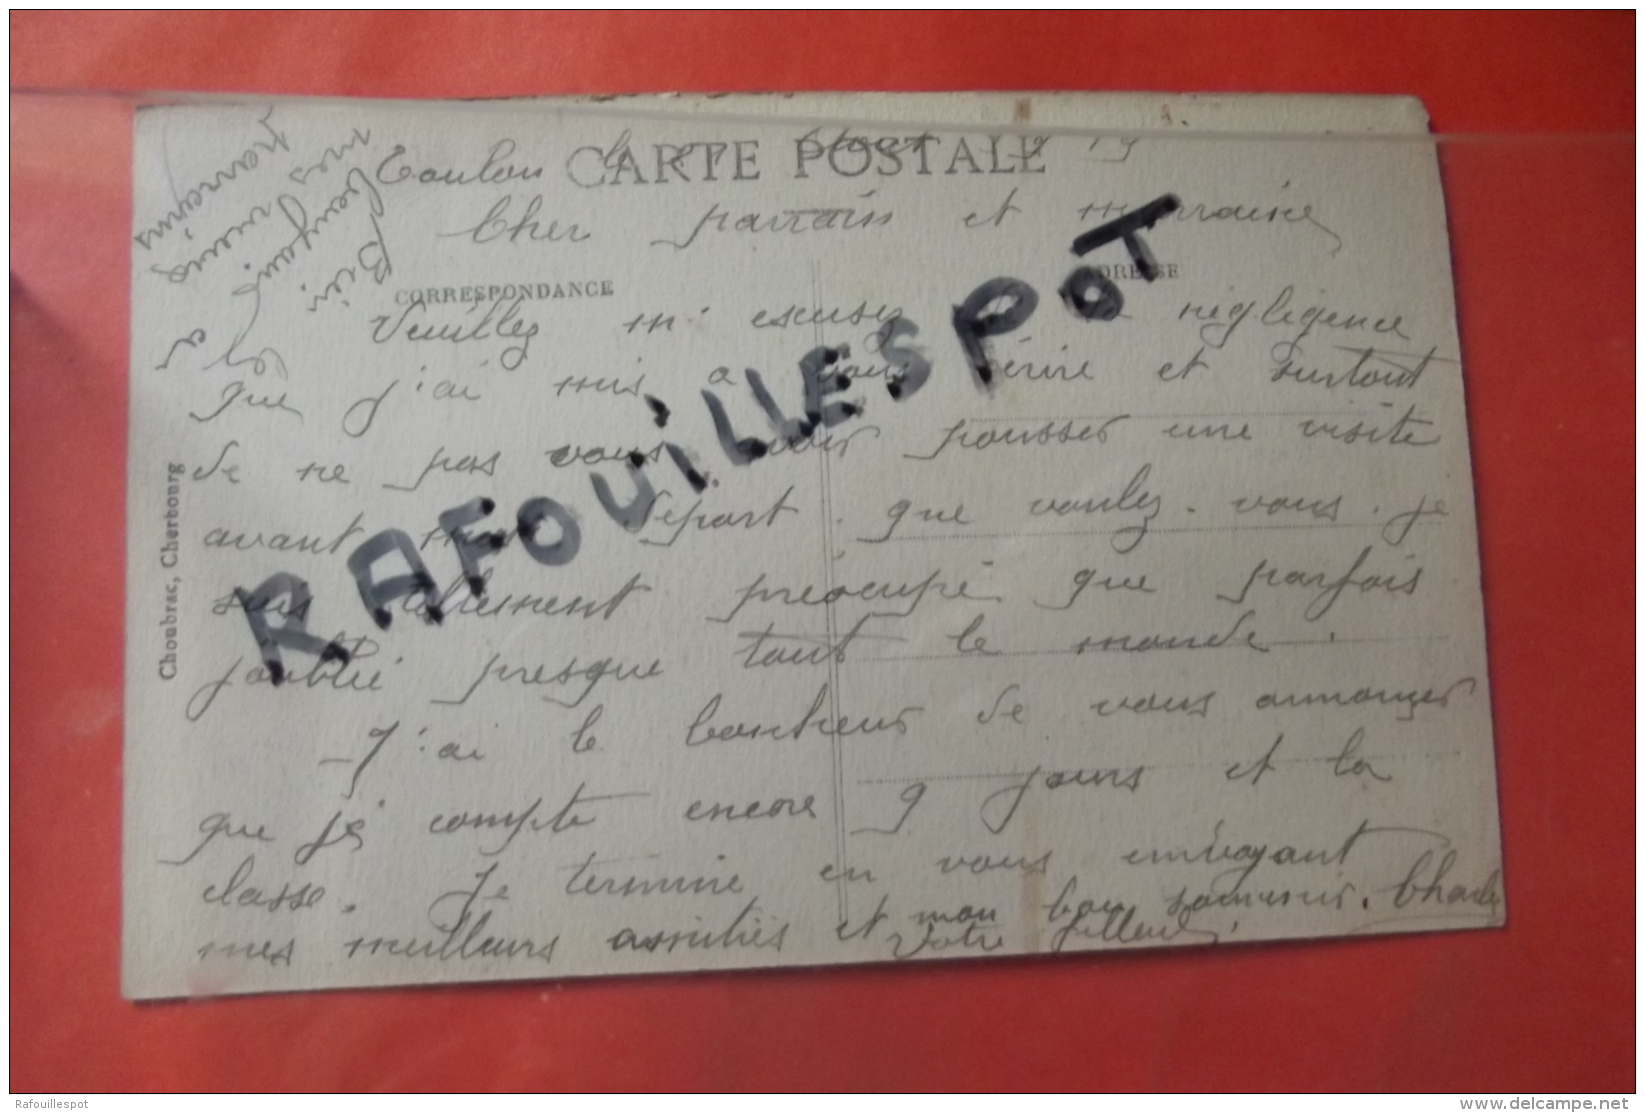 Toulon le Aout 1919
CARTE POSTALE
Cher parrain et marraine
CORRESPONDANCE
ADRESSE
Veuillez m'escusez de la négligence
que j'ai mis a vous écrire et surtout
de ne pas vous avoir pousser une visite
avant mon départ. que voulez-vous. je
suis tellement préocupé que parfois
j'oublié presque tout le monde.
J'ai le bonheur de vous annonçer
que je compte encore 9 jours et la
classe. Je termine en vous envoyant
mes meilleurs amitiés et mon bon souvenir. Charles
Votre filleul.
Choubrac, Cherbourg
RAFOUILLESPOT
Rafouillespot
www.delcampe.net